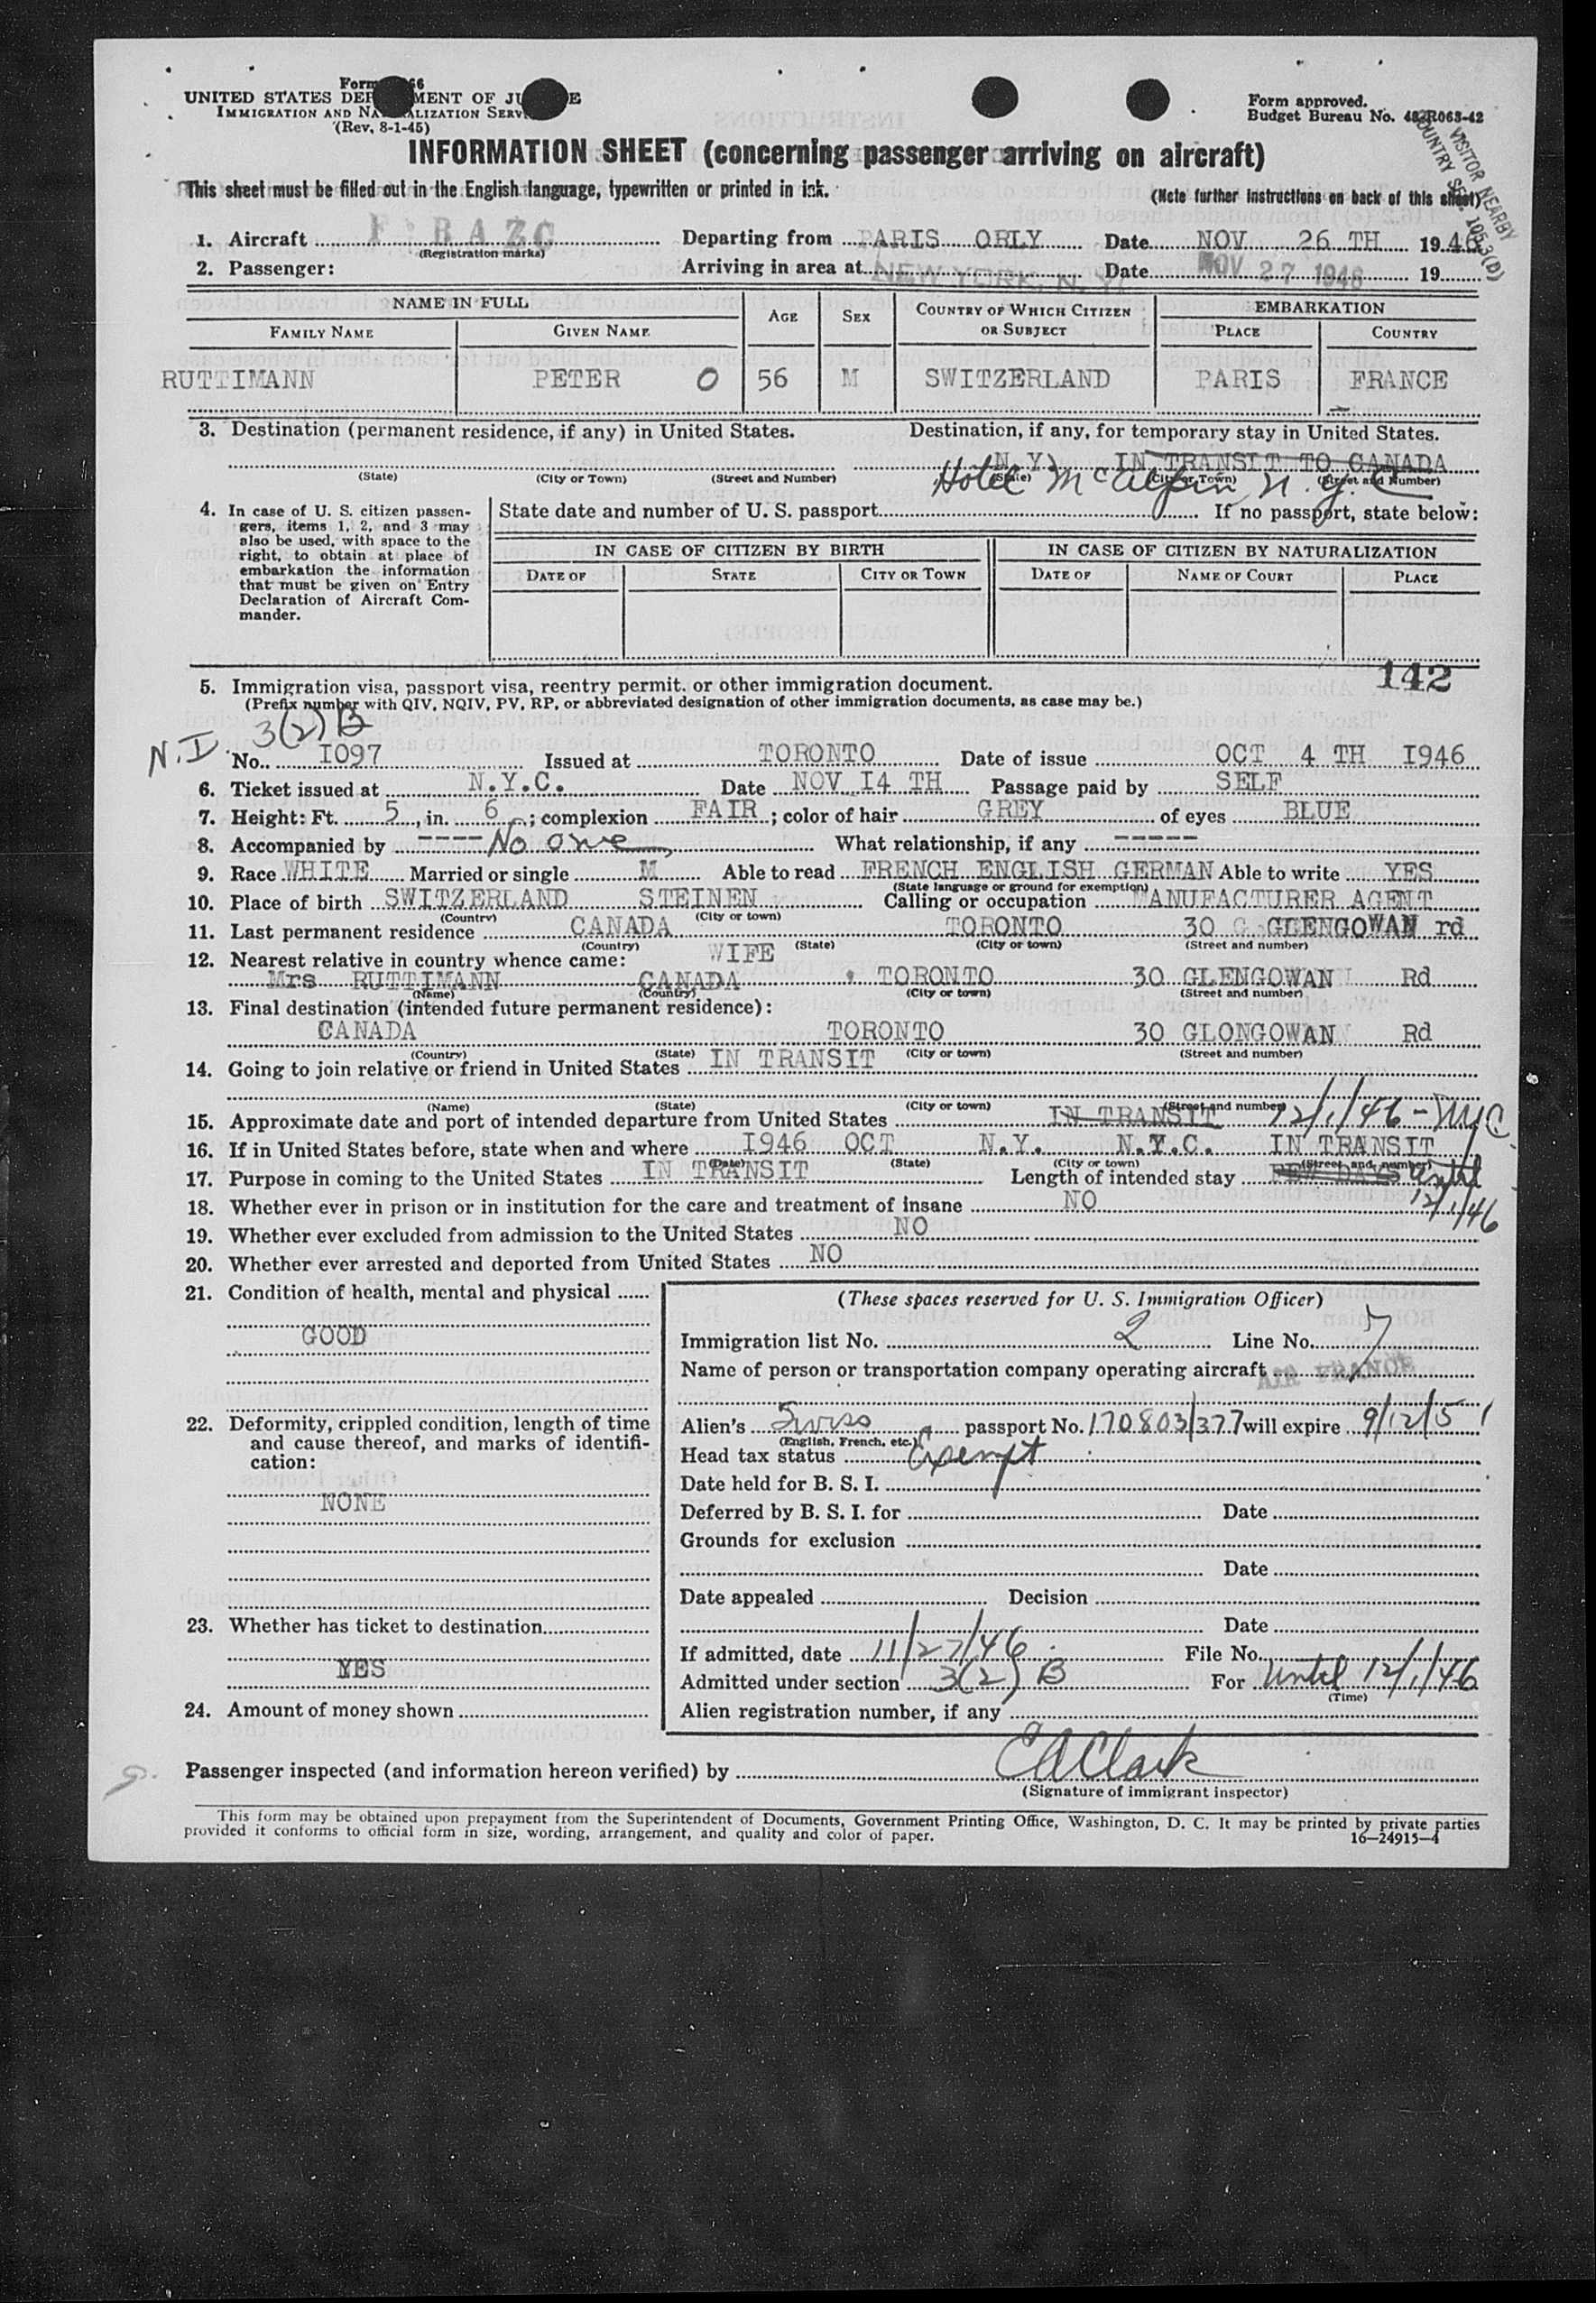 Form 66
UNITED STATES DEP MENT OF JU E
IMMIGRATION AND NA ALIZATION SERV
(Rev. 8-1-45)
Form approved.
Budget Bureau No. 43-R063-42
VISITOR NEARBY
COUNTRY SEC. 105.3(B)
INFORMATION SHEET (concerning passenger arriving on aircraft)
This sheet must be filled out in the English language, typewritten or printed in ink.
(Note further instructions on back of this sheet)
1. Aircraft F: BAZC Departing from PARIS ORLY Date NOV 26 TH 1946
(Registration marks)
2. Passenger: Arriving in area at NEW YORK, N.Y. Date NOV 27 1946 19
NAME IN FULL AGE SEX COUNTRY OF WHICH CITIZEN OR SUBJECT EMBARKATION
FAMILY NAME GIVEN NAME PLACE COUNTRY
RUTTIMANN PETER O 56 M SWITZERLAND PARIS FRANCE
3. Destination (permanent residence, if any) in United States. Destination, if any, for temporary stay in United States.
N.Y) IN TRANSIT TO CANADA
(State) (City or Town) (Street and Number) (State) (City or Town) (Street and Number)
Hotel McAlpin N.Y.C
4. In case of U. S. citizen passen-
gers, items 1, 2, and 3 may
also be used, with space to the
right, to obtain at place of
embarkation the information
that must be given on Entry
Declaration of Aircraft Com-
mander.
State date and number of U. S. passport If no passport, state below:
IN CASE OF CITIZEN BY BIRTH IN CASE OF CITIZEN BY NATURALIZATION
DATE OF STATE CITY OR TOWN DATE OF NAME OF COURT PLACE
142
5. Immigration visa, passport visa, reentry permit, or other immigration document.
(Prefix number with QIV, NQIV, PV, RP, or abbreviated designation of other immigration documents, as case may be.)
3(2)B
N.I. No. I097 Issued at TORONTO Date of issue OCT 4 TH I946
6. Ticket issued at N.Y.C. Date NOV I4 TH Passage paid by SELF
7. Height: Ft. 5, in. 6; complexion FAIR; color of hair GREY of eyes BLUE
8. Accompanied by ---- No one What relationship, if any -----
9. Race WHITE Married or single M Able to read FRENCH ENGLISH GERMAN Able to write YES
(State language or ground for exemption)
10. Place of birth SWITZERLAND STEINEN Calling or occupation MANUFACTURER AGENT
(Country) (City or town)
11. Last permanent residence CANADA TORONTO 30 GLENGOWAN rd
(Country) (State) (City or town) (Street and number)
12. Nearest relative in country whence came: WIFE
Mrs RUTTIMANN CANADA TORONTO 30 GLENGOWAN Rd
(Name) (Country) (City or town) (Street and number)
13. Final destination (intended future permanent residence):
CANADA TORONTO 30 GLONGOWAN Rd
(Country) (State) (City or town) (Street and number)
14. Going to join relative or friend in United States IN TRANSIT
(Name) (State) (City or town) (Street and number)
15. Approximate date and port of intended departure from United States IN TRANSIT 12/1/46 - NYC
16. If in United States before, state when and where I946 OCT N.Y. N.Y.C. IN TRANSIT
(Date) (State) (City or town) (Street and number)
17. Purpose in coming to the United States IN TRANSIT Length of intended stay FEW DAYS until
12/1/46
18. Whether ever in prison or in institution for the care and treatment of insane NO
19. Whether ever excluded from admission to the United States NO
20. Whether ever arrested and deported from United States NO
21. Condition of health, mental and physical
GOOD
22. Deformity, crippled condition, length of time
and cause thereof, and marks of identifi-
cation:
NONE
23. Whether has ticket to destination
YES
24. Amount of money shown
(These spaces reserved for U. S. Immigration Officer)
Immigration list No. 2 Line No. 7
Name of person or transportation company operating aircraft AIR FRANCE
Alien's Swiss passport No. 170803/377 will expire 9/12/51
(English, French, etc.)
Head tax status Exempt
Date held for B. S. I.
Deferred by B. S. I. for Date
Grounds for exclusion
Date
Date appealed Decision
Date
If admitted, date 11/27/46 File No.
Admitted under section 3(2) B For Until 12/1/46
(Time)
Alien registration number, if any
Passenger inspected (and information hereon verified) by CAClark
(Signature of immigrant inspector)
This form may be obtained upon prepayment from the Superintendent of Documents, Government Printing Office, Washington, D. C. It may be printed by private parties
provided it conforms to official form in size, wording, arrangement, and quality and color of paper.
16—24915-4